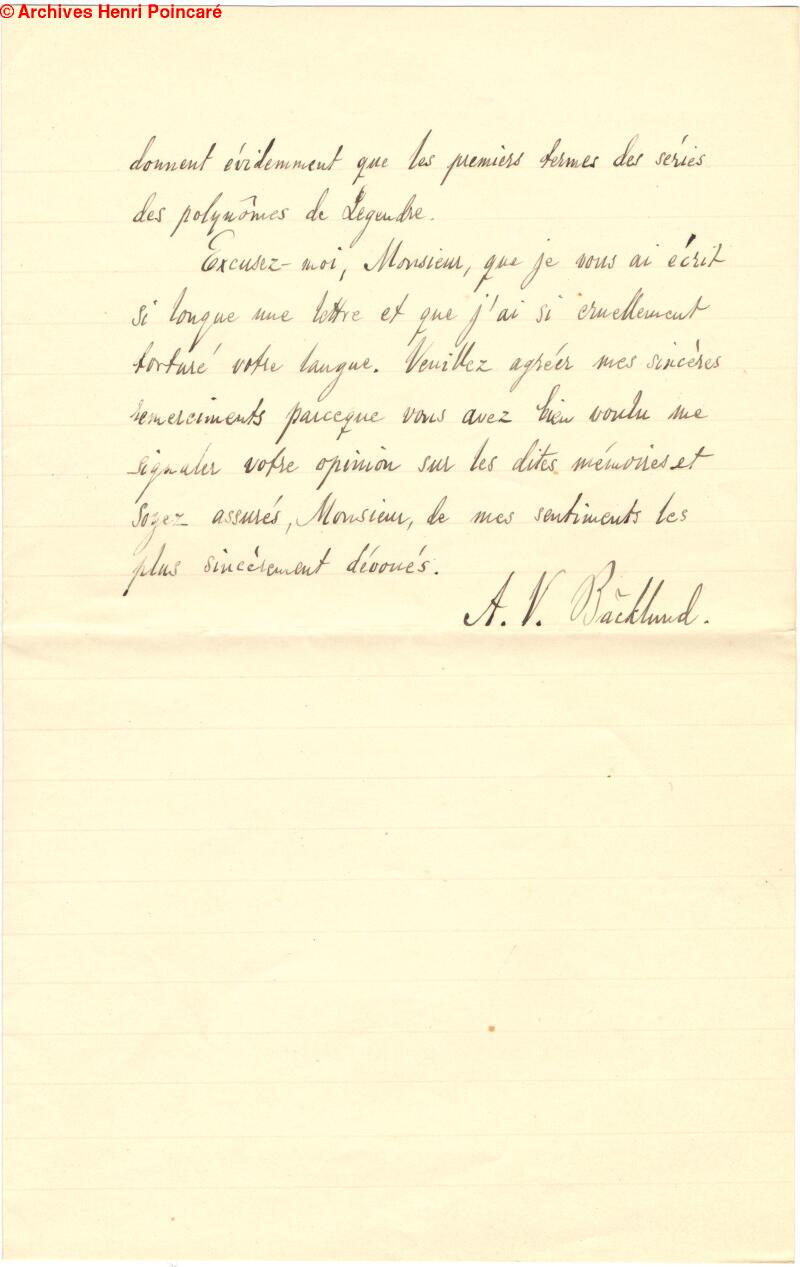 © Archives Henri Poincaré
donnent évidemment que les premiers termes des séries
des polynômes de Legendre.
Excusez-moi, Monsieur, que je vous ai écrit
si longue une lettre et que j'ai si cruellement
torturé votre langue. Veuillez agréer mes sincères
remerciments parceque vous avez bien voulu me
signaler votre opinion sur les dites mémoires et
soyez assurés, Monsieur, de mes sentiments les
plus sincèrement dévoués.
A. V. Bäcklund.